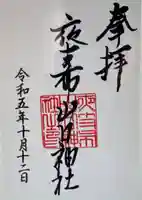 奉拝
夜支布山口神社
令和五年十月十二日